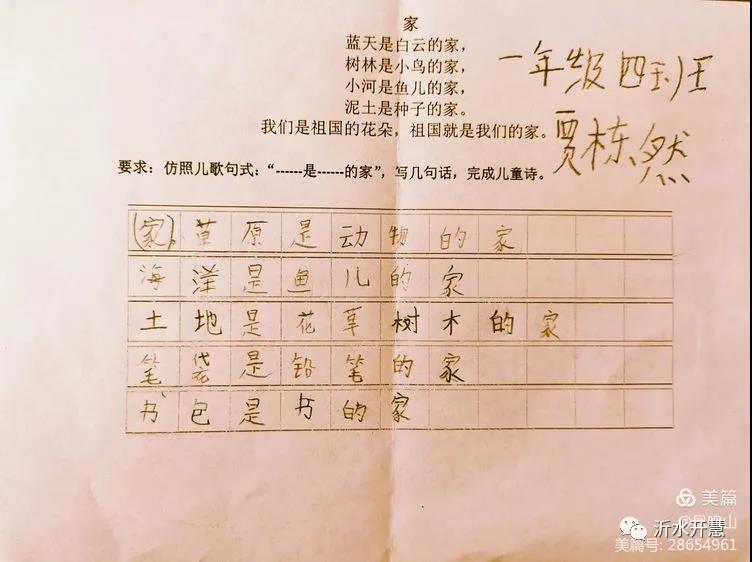 家
蓝天是白云的家，
树林是小鸟的家，
小河是鱼儿的家，
泥土是种子的家。
我们是祖国的花朵，祖国就是我们的家。
一年级四班
贾栋然
要求：仿照儿歌句式：“------是------的家”，写几句话，完成儿童诗。
(家)草原是动物的家
海洋是鱼儿的家
土地是花草树木的家
笔袋是铅笔的家
书包是书的家
美篇
沂水开慧
美篇号: 28654961